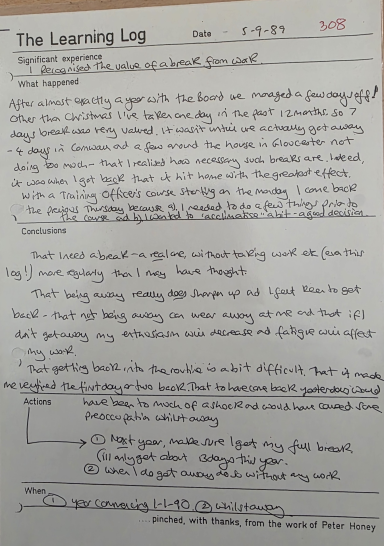 308
The Learning Log Date - 5-9-89
Significant experience
I Recognised the value of a break from work
What happened
After almost exactly a year with the Board we managed a few days off!
Other than Christmas I've taken one day in the past 12 months. So 7
days break was very valued. It wasn't until we actually got away
- 4 days in Cornwall and a few around the house in Gloucester not
doing too much - that I realised how necessary such breaks are. Indeed,
it was when I got back that it hit home with the greatest effect.
With a Training Officer's course starting on the Monday I came back
the previous Thursday because a) I needed to do a few things prior to
the course and b) I wanted to "acclimatise" a bit - a good decision.
Conclusions
That I need a break - a real one, without taking work etc (even this
log!) more regularly than I may have thought.
That being away really does sharpen up and I feel keen to get
back - that not being away can wear away at me and that if I
don't get away my enthusiasm will decrease and fatigue will affect
my work.
That getting back into the routine is a bit difficult. That it made
me the first day or two back. That to have come back yesterday would
have been to much of a shock and would have caused some
preoccupation whilst away
Actions
① Next year, make sure I get my full break
(i'll only get about days this year.
② When I do get away do it without any work
When
① year commencing 1-1-90 ② whilst away
....pinched, with thanks, from the work of Peter Honey